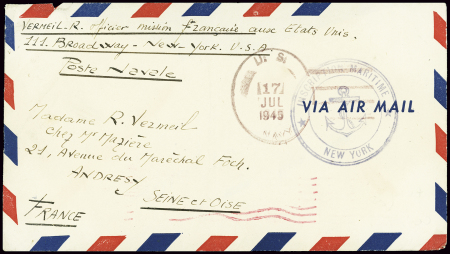 VERMEIL. R. Officier mission Française aux Etats Unis.
111. Broadway - New-York. U.S.A
Poste Navale
U. S.
17
JUL
1945
NAVY
INSCRIPTION MARITIME
NEW YORK
VIA AIR MAIL
Madame R. Vermeil
chez Mr Mazière
21, Avenue du Maréchal Foch.
ANDRESY
SEINE et OISE
FRANCE